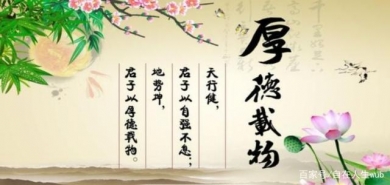 厚德載物
天行健，
君子以自强不息；
地势坤，
君子以厚德载物。
百家号/自在人生wub